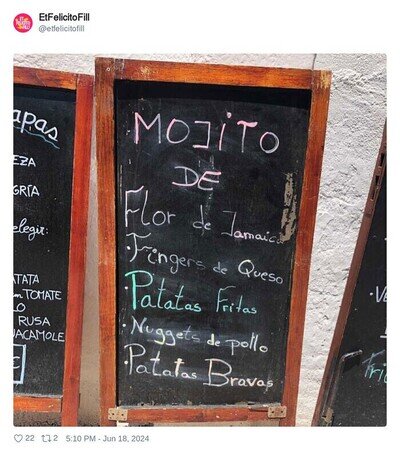 EtFelicitoFill
@etfelicitofill
apas
EZA
GRÍA
elegir:
TATA
TOMATE
LO
RUSA
UACAMOLE
E
MOJITO
DE
Flor de Jamaica
·Fingers de Queso
·Patatas Fritas
·Nuggets de pollo
·Patatas Bravas
Frit
22 2 5:10 PM - Jun 18, 2024